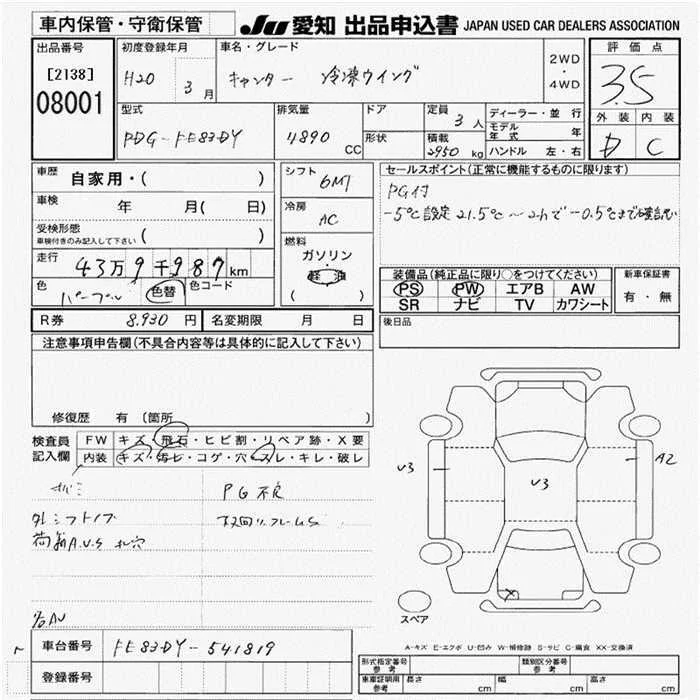 車内保管・守衛保管
JU 愛知 出品申込書 JAPAN USED CAR DEALERS ASSOCIATION
出品番号
[2138]
08001
初度登録年月
H20 3月
車名・グレード
キャンター 冷凍ウイング
2WD
・
4WD
評価点
3.5
外装 内装
D C
型式
PDG-FE83DY
排気量
4890 CC
ドア
形状
定員
3人
積載
2950 kg
ディーラー・並行
モデル年式 年
ハンドル 左・右
車歴
自家用・( )
車検
年 月( 日)
受検形態
車検付きのみ記入して下さい ( )
走行
43万9千987km
色
パープル 色替 色コード
シフト
6MT
冷房
AC
燃料
ガソリン
・
軽油
( )
セールスポイント(正常に機能するものに限ります)
PG付
-5℃設定 21.5℃〜2hで-0.5℃まで確認
装備品(純正品に限り○をつけてください)
PS PW エアB AW
SR ナビ TV カワシート
新車保証書
有・無
後日品
R券 8,930円 名変期限 月 日
注意事項申告欄(不具合内容等は具体的に記入して下さい)
修復歴 有 〔箇所 〕
検査員
記入欄
FW キズ・飛石・ヒビ割・リペア跡・X要
内装 キズ・汚レ・コゲ・穴・スレ・キレ・破レ
PG不良
外シフトノブ
荷箱A.U.S ネジ穴
下回リ.フレームS
V3
V3
A2
X
スペア
A-キズ E-エクボ U-凹み W-補修跡 S-サビ C-腐食 XX-交換済
車台番号 FE83DY-541819
登録番号
形式指定番号
参考
類別区分番号
参考
車庫証明用
参考
長さ cm 幅 cm 高さ cm